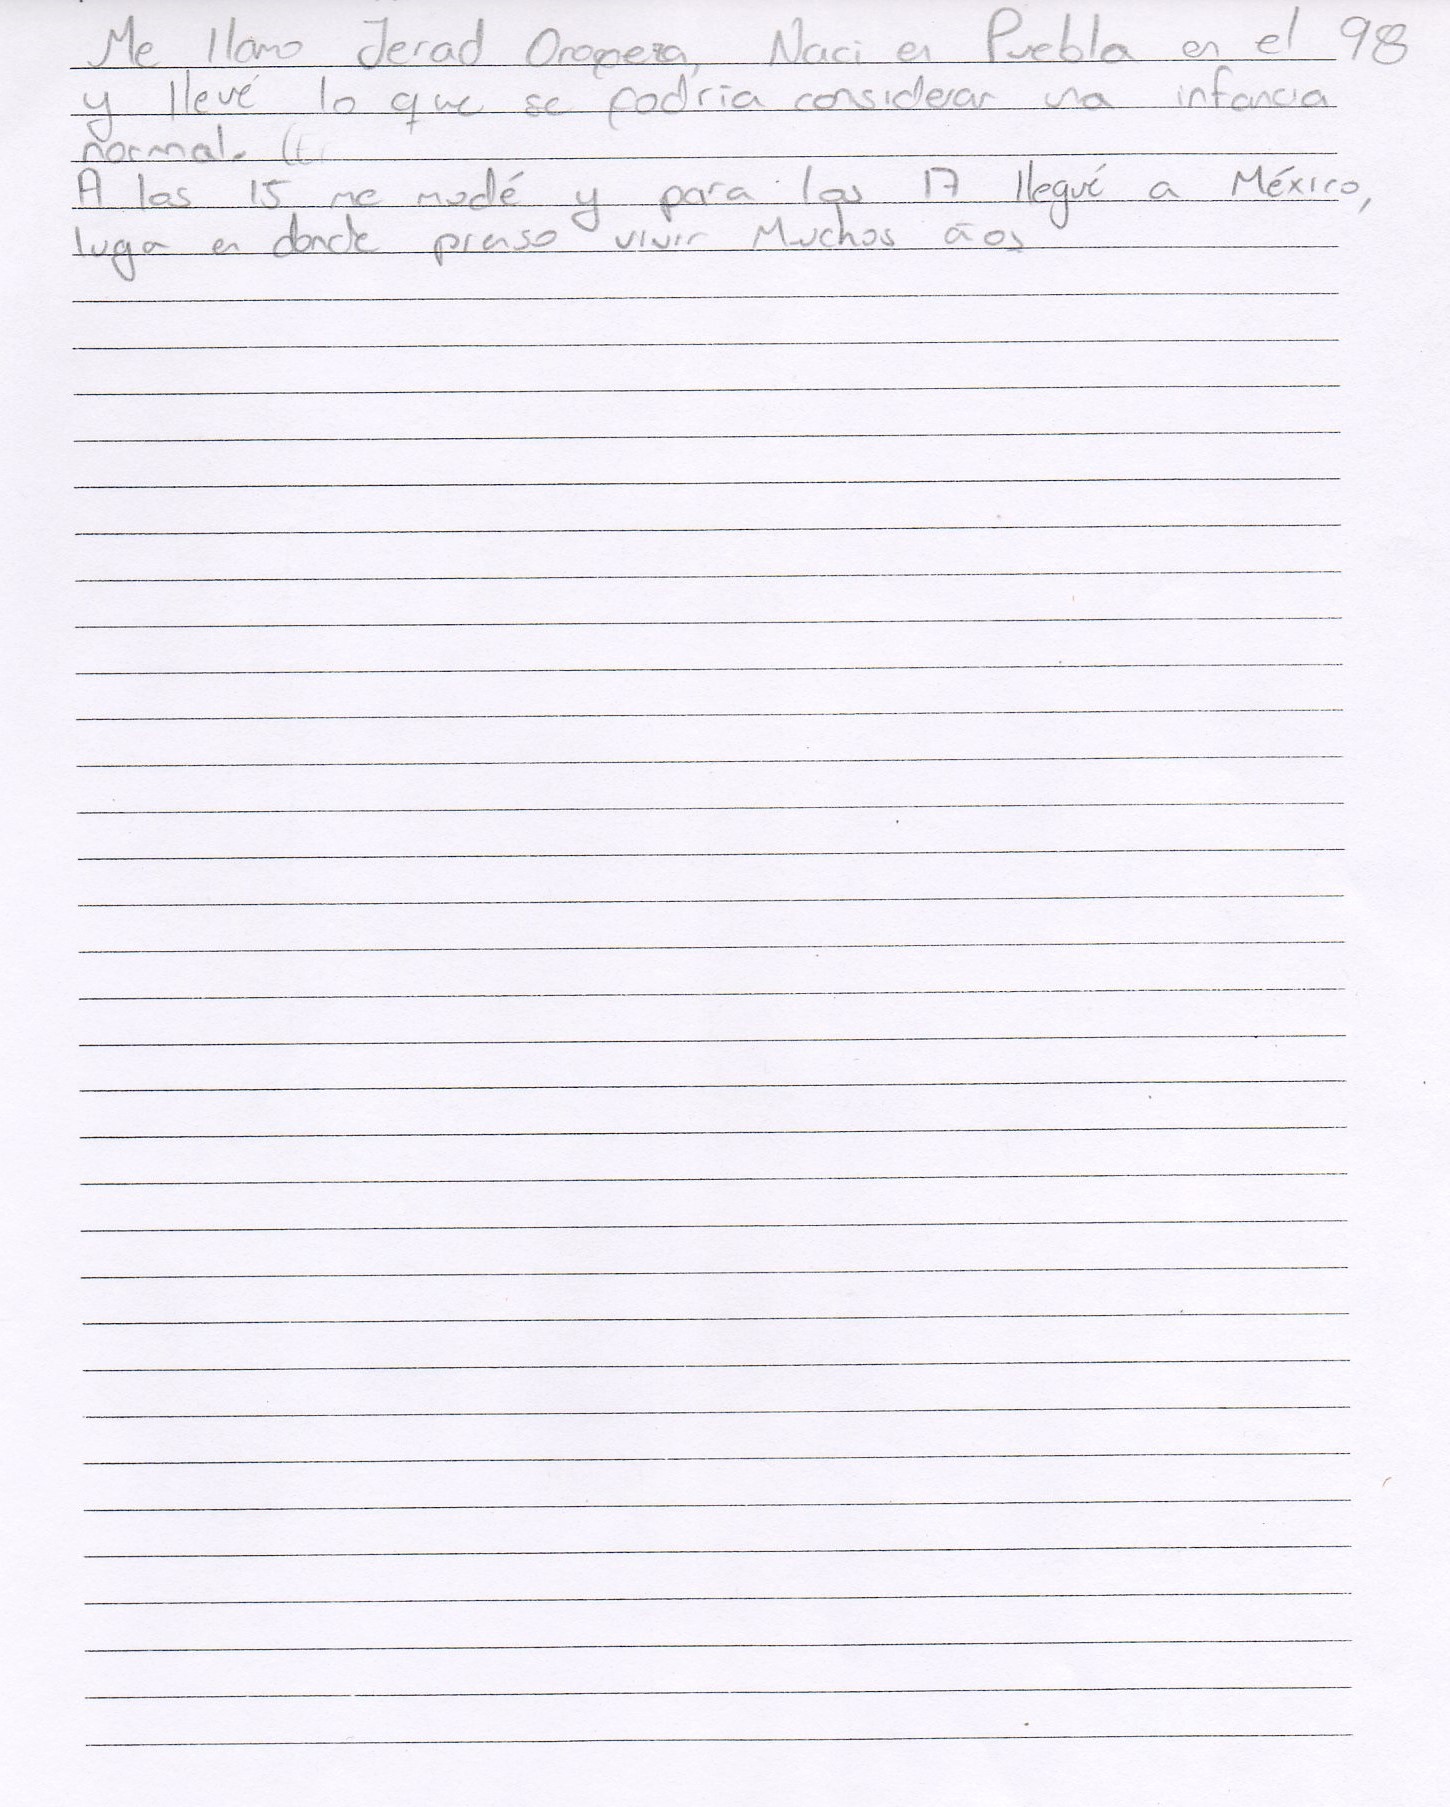 Me llamo Jerad Oropeza, Naci en Puebla en el 98
y llevé lo que se podría considerar una infancia
normal.
A los 15 me mudé y para los 17 llegué a México,
lugar en donde pienso vivir Muchos años